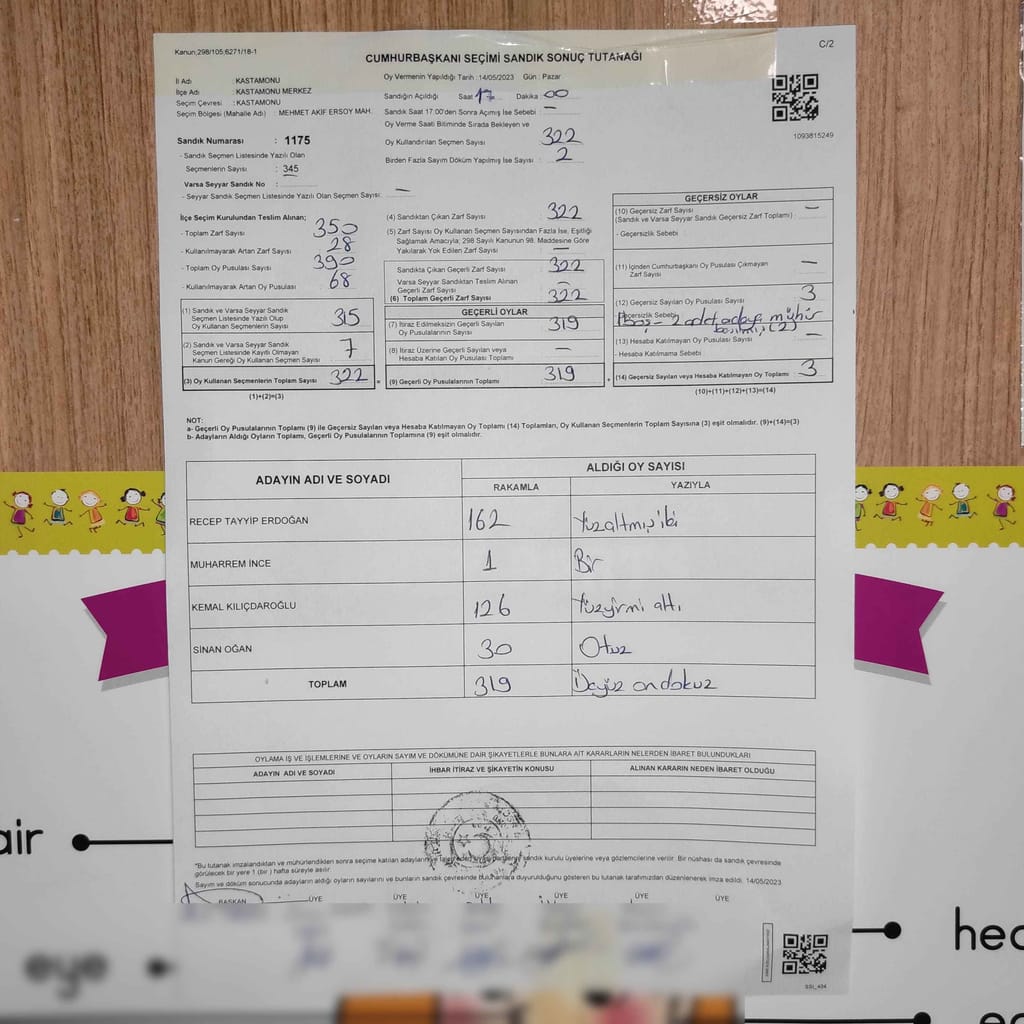 Kanun;298/105;6271/18-1
C/2
CUMHURBAŞKANI SEÇİMİ SANDIK SONUÇ TUTANAĞI
İl Adı : KASTAMONU
İlçe Adı : KASTAMONU MERKEZ
Seçim Çevresi : KASTAMONU
Seçim Bölgesi (Mahalle Adı) : MEHMET AKİF ERSOY MAH.
Oy Vermenin Yapıldığı Tarih : 14/05/2023 Gün : Pazar
Sandığın Açıldığı Saat 17 Dakika 00
Sandık Saat 17:00'den Sonra Açımış İse Sebebi : —
Oy Verme Saati Bitiminde Sırada Bekleyen ve
Oy Kullandırılan Seçmen Sayısı 322
Birden Fazla Sayım Döküm Yapılmış İse Sayısı : 2
1093815249
Sandık Numarası : 1175
- Sandık Seçmen Listesinde Yazılı Olan
Seçmenlerin Sayısı : 345
Varsa Seyyar Sandık No :
- Seyyar Sandık Seçmen Listesinde Yazılı Olan Seçmen Sayısı: —
İlçe Seçim Kurulundan Teslim Alınan;
- Toplam Zarf Sayısı 350
- Kullanılmayarak Artan Zarf Sayısı 28
- Toplam Oy Pusulası Sayısı 390
- Kullanılmayarak Artan Oy Pusulası 68
(1) Sandık ve Varsa Seyyar Sandık
Seçmen Listesinde Yazılı Olup
Oy Kullanan Seçmenlerin Sayısı 315
(2) Sandık ve Varsa Seyyar Sandık
Seçmen Listesinde Kayıtlı Olmayan
Kanun Gereği Oy Kullanan Seçmen Sayısı 7
(3) Oy Kullanan Seçmenlerin Toplam Sayısı 322 =
(1)+(2)=(3)
(4) Sandıktan Çıkan Zarf Sayısı 322
(5) Zarf Sayısı Oy Kullanan Seçmen Sayısından Fazla İse, Eşitliği
Sağlamak Amacıyla; 298 Sayılı Kanunun 98. Maddesine Göre
Yakılarak Yok Edilen Zarf Sayısı —
Sandıkta Çıkan Geçerli Zarf Sayısı 322
Varsa Seyyar Sandıktan Teslim Alınan
Geçerli Zarf Sayısı —
(6) Toplam Geçerli Zarf Sayısı 322
GEÇERLİ OYLAR
(7) İtiraz Edilmeksizin Geçerli Sayılan
Oy Pusulasının Sayısı 319
(8) İtiraz Üzerine Geçerli Sayılan veya
Hesaba Katılan Oy Pusulası Toplamı —
(9) Geçerli Oy Pusulalarının Toplamı 319 +
GEÇERSİZ OYLAR
(10) Geçersiz Zarf Sayısı —
(Sandık ve Varsa Seyyar Sandık Geçersiz Zarf Toplamı) :
- Geçersizlik Sebebi :
(11) İçinden Cumhurbaşkanı Oy Pusulası Çıkmayan
Zarf Sayısı —
(12) Geçersiz Sayılan Oy Pusulası Sayısı 3
Geçersizlik Sebebi: 1 Boş - 2 adet adaya mühür
basılmış (2)
(13) Hesaba Katılmayan Oy Pusulası Sayısı —
- Hesaba Katılmama Sebebi
(14) Geçersiz Sayılan veya Hesaba Katılmayan Oy Toplamı 3
(10)+(11)+(12)+(13)=(14)
NOT:
a- Geçerli Oy Pusulalarının Toplamı (9) ile Geçersiz Sayılan veya Hesaba Katılmayan Oy Toplamı (14) Toplamları, Oy Kullanan Seçmenlerin Toplam Sayısına (3) eşit olmalıdır. (9)+(14)=(3)
b- Adayların Aldığı Oyların Toplamı, Geçerli Oy Pusulalarının Toplamına (9) eşit olmalıdır.
ADAYIN ADI VE SOYADI ALDIĞI OY SAYISI
RAKAMLA YAZIYLA
RECEP TAYYİP ERDOĞAN 162 Yüzaltmışiki
MUHARREM İNCE 1 Bir
KEMAL KILIÇDAROĞLU 126 Yüzyirmi altı
SİNAN OĞAN 30 Otuz
TOPLAM 319 Üçyüz ondokuz
OYLAMA İŞ VE İŞLEMLERİNE VE OYLARIN SAYIM VE DÖKÜMÜNE DAİR ŞİKAYETLERLE BUNLARA AİT KARARLARIN NELERDEN İBARET BULUNDUKLARI
ADAYIN ADI VE SOYADI İHBAR İTİRAZ VE ŞİKAYETİN KONUSU ALINAN KARARIN NEDEN İBARET OLDUĞU
*Bu tutanak imzalandıktan ve mühürlendikten sonra seçime katılan adayların ve sandık kurulu üyelerine veya gözlemcilerine verilir. Bir nüshası da sandık çevresinde
görülecek bir yere 1 (bir ) hafta süreyle asılır.
Sayım ve döküm sonucunda adayların aldığı oyların sayılarını ve bunların sandık çevresinde bulunanlara duyurulduğunu gösteren bu tutanak tarafımızdan düzenlenerek imza edildi. 14/05/2023
BAŞKAN ÜYE ÜYE ÜYE ÜYE ÜYE ÜYE
SSI_404
air
eye
hea